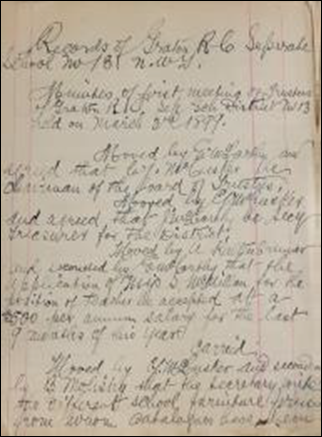 Records of Gratton R.C. Separate
School No 13 N.W.T.
Minutes of first meeting of Trustees
Gratton R.C. Sep Sch District No 13
held on March 3rd 1899.
Moved by McCarthy and
agreed that be
chairman of the board of Trustees.
Moved by
and agreed that McCarthy be Secy
Treasurer for the District.
Moved by A
and seconded by McCarthy that the
application of Miss S McMillan for the
position of teacher be accepted at a
$500 per annum salary for the last
9 months of this year
Carried
Moved by and seconded
by that the secretary write
the different school furniture
from whom catalogues have been